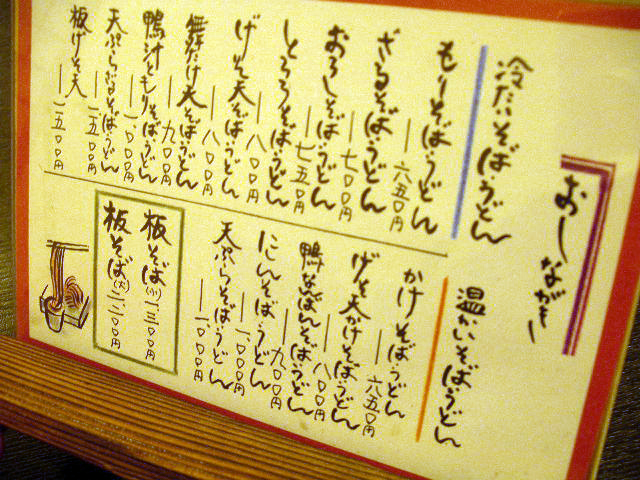 おしながき
冷たいそばうどん
もりそばうどん 六五〇円
ざるそばうどん 七〇〇円
おろしそばうどん 七五〇円
とろろそばうどん 八〇〇円
げそ天そばうどん 八〇〇円
舞たけ天そばうどん 九〇〇円
鴨汁ともりそばうどん 一、〇〇〇円
天ぷらざるそばうどん 一五〇〇円
板げそ天 一五〇〇円
温かいそばうどん
かけそばうどん 六五〇円
げそ天かけそばうどん 八〇〇円
鴨なばんそばうどん 九〇〇円
にしんそばうどん 一、〇〇〇円
天ぷらそばうどん 一〇〇〇円
板そば(小) 一、三〇〇円
板そば(大) 二、二〇〇円